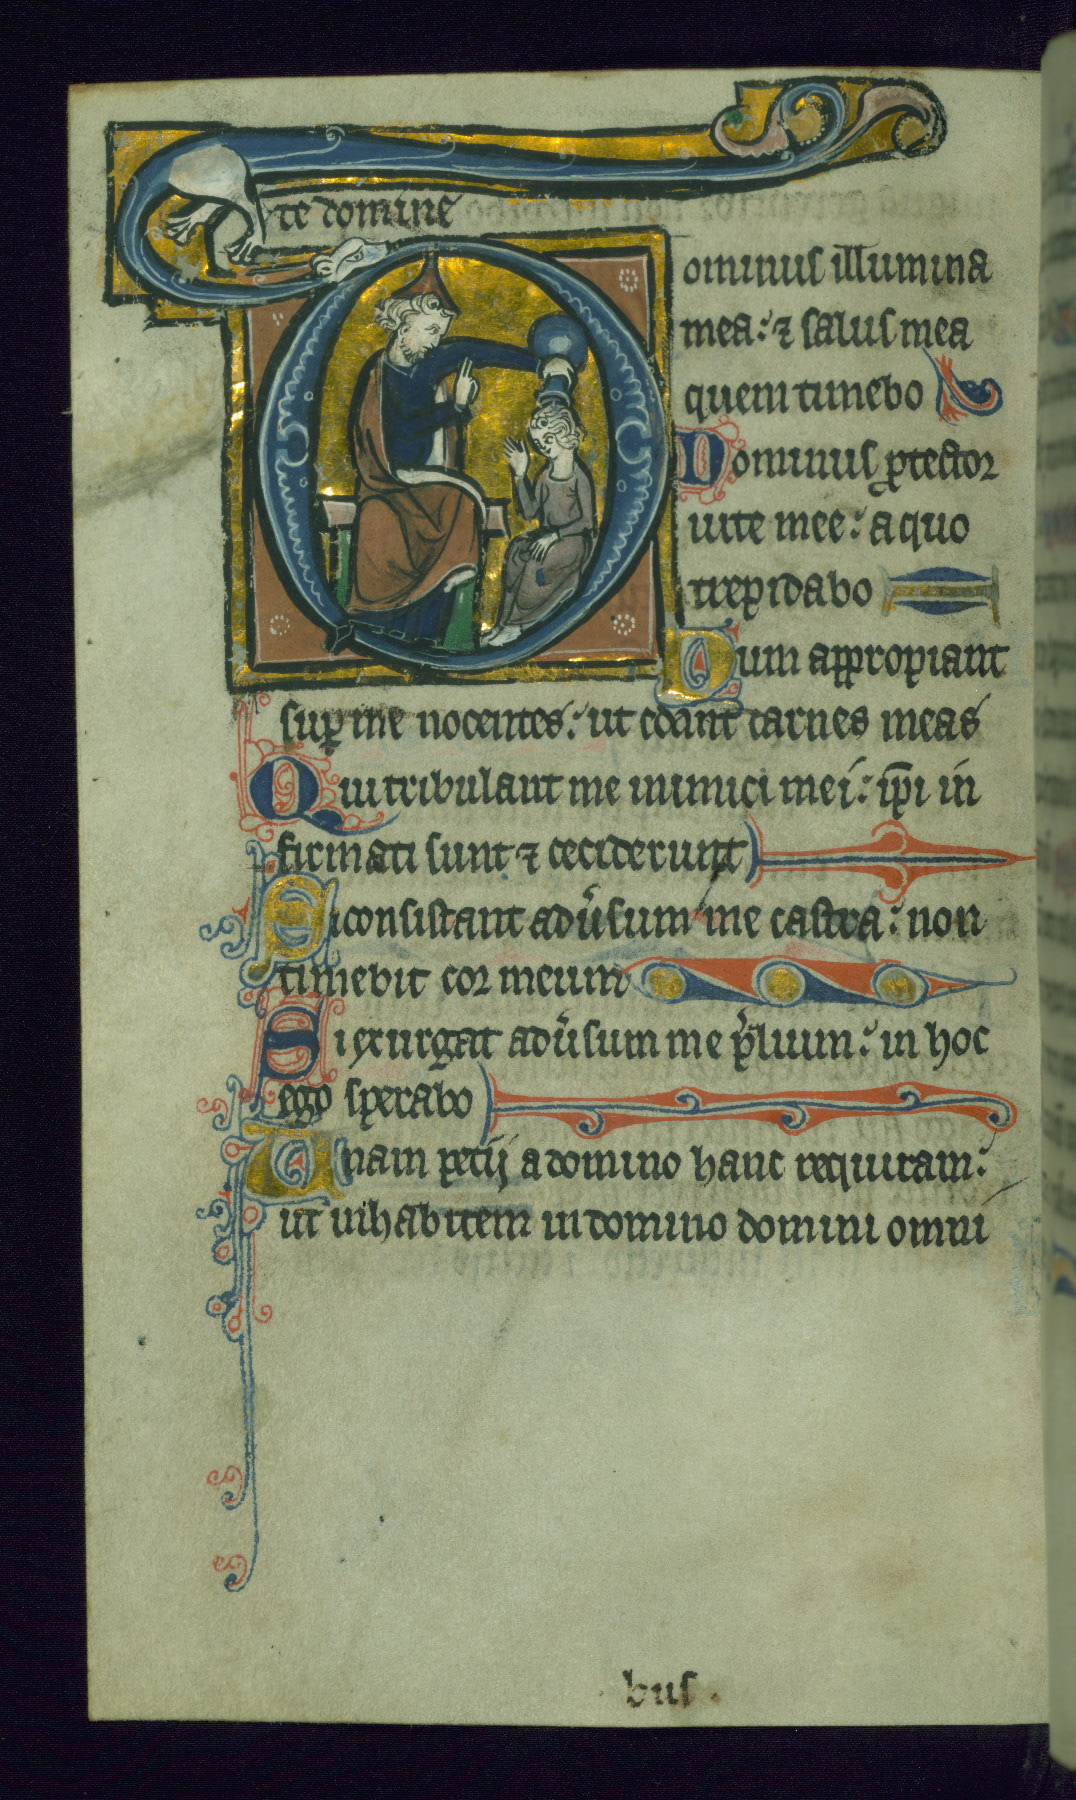 te domine
Dominus illumina
mea: ⁊ salus mea
quem timebo
Dominus ꝓtector
uite mee: a quo
trepidabo
Dum appropiant
suꝑ me nocentes: ut edant carnes meas
Qui tribulant me inimici mei: ip̄i in
firmati sunt ⁊ ceciderunt
Si consistant adu̾sum me castra: non
timebit cor meum
Si exurgat adu̾sum me p̾lium: in hoc
ego sperabo
Unam petij a domino hanc requiram:
ut inhabitem in domino domini omni
bus.